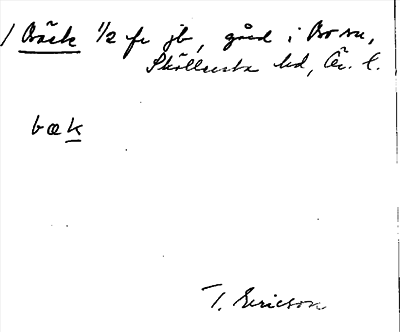 / Bräck 1/2 fr jb, gård i Bo sn,
Sköllersta hd, Ör. l.
bœk
T. Ericson